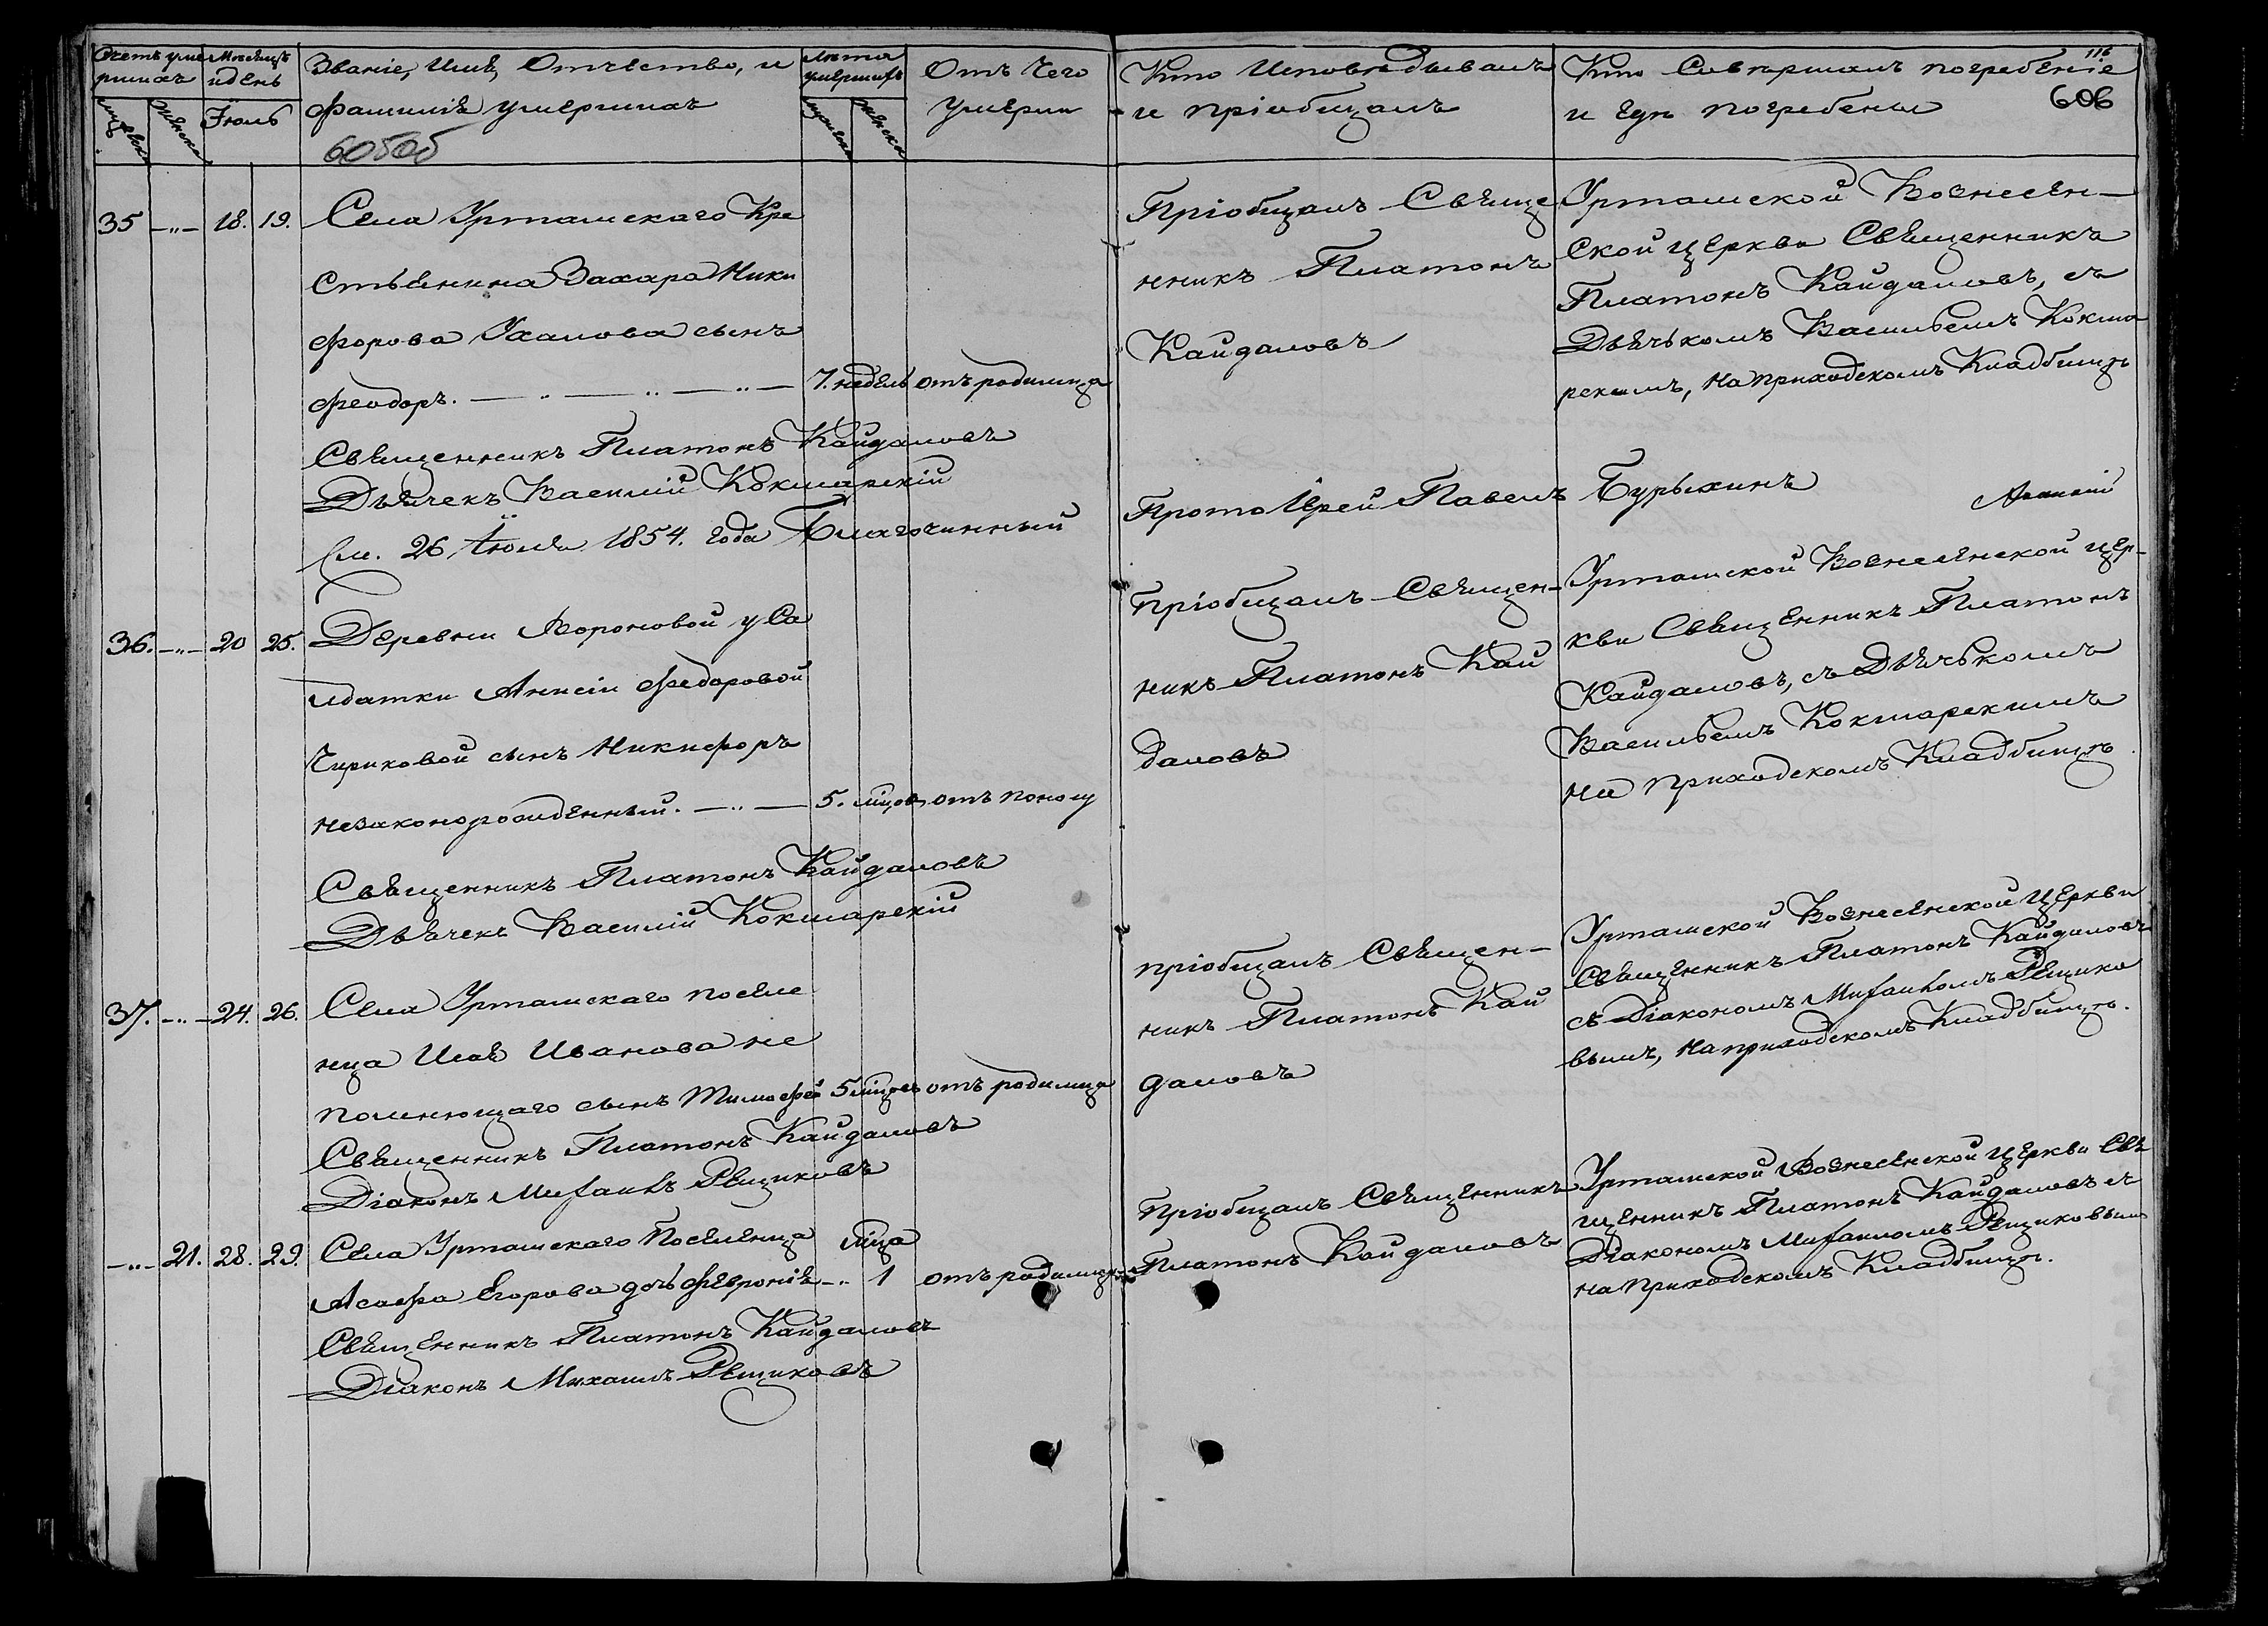 Счетъ уме
ршихъ
Мѣсяцъ
и день
Званіе, Имя, Отчество, и
Фамилія умершихъ
Лѣта
умершихъ
Отъ Чего
умерли
Кто Исповѣдывалъ
и пріобщалъ
Кто Совершалъ погребеніе
и гдѣ погребены
116
606
Іюль
35 -"- 18. 19. Села Урташскаго Кре
стьянина Захара Ники
форова Ухалова сынъ
Феодоръ. — " — " — " — 7. недель отъ родимца
Пріобщалъ Свяще
нникъ Платонъ
Кайдаловъ
Урташской Вознесен-
ской церкви Священникъ
Платонъ Кайдаловъ, съ
Дьячькомъ Васильемъ Кокша
рскимъ, на приходскомъ Кладбищѣ
Священникъ Платонъ Кайдаловъ
Дьячекъ Василій Кокшарскій
См. 26 Іюля 1854. года Благочинный
Протоіерей Павелъ Бурыхинъ
36. -"- 20 25. Деревни Вороновой у Са
лдатки Анисіи Федоровой
Чириковой сынъ Никифоръ
незаконорожденный. — " — 5. мцов отъ поносу
Пріобщалъ Священ-
никъ Платонъ Кай
даловъ
Урташской Вознесенской цер-
кви Священникъ Платонъ
Кайдаловъ, съ Дьячькомъ
Васильемъ Кокшарскимъ
на приходскомъ Кладбищѣ
Священникъ Платонъ Кайдаловъ
Дьячекъ Василій Кокшарскій
37. -"- 24. 26. Села Урташскаго поселе
нца Ильи Иванова не
помнющаго сынъ Тимофей 5 мцовъ отъ родимца
пріобщалъ Священ-
никъ Платонъ Кай
даловъ
Урташской Вознесенской Церкви
Священникъ Платонъ Кайдаловъ
съ Діакономъ Михаиломъ Рещико
вымъ, на приходскомъ Кладбищѣ.
Священникъ Платонъ Кайдаловъ
Діаконъ Михаилъ Рещиковъ
-"- 21. 28. 29. Села Урташскаго Поселенца мца
Асафа Егорова дочь Февронія -" 1 отъ родимца
Пріобщалъ Священникъ
Платонъ Кайдаловъ
Урташской Вознесенской церкви Свя
щенникъ Платонъ Кайдаловъ съ
Діакономъ Михаиломъ Рещиковымъ
на приходскомъ Кладбищѣ.
Священникъ Платонъ Кайдаловъ
Діаконъ Михаилъ Рещиковъ